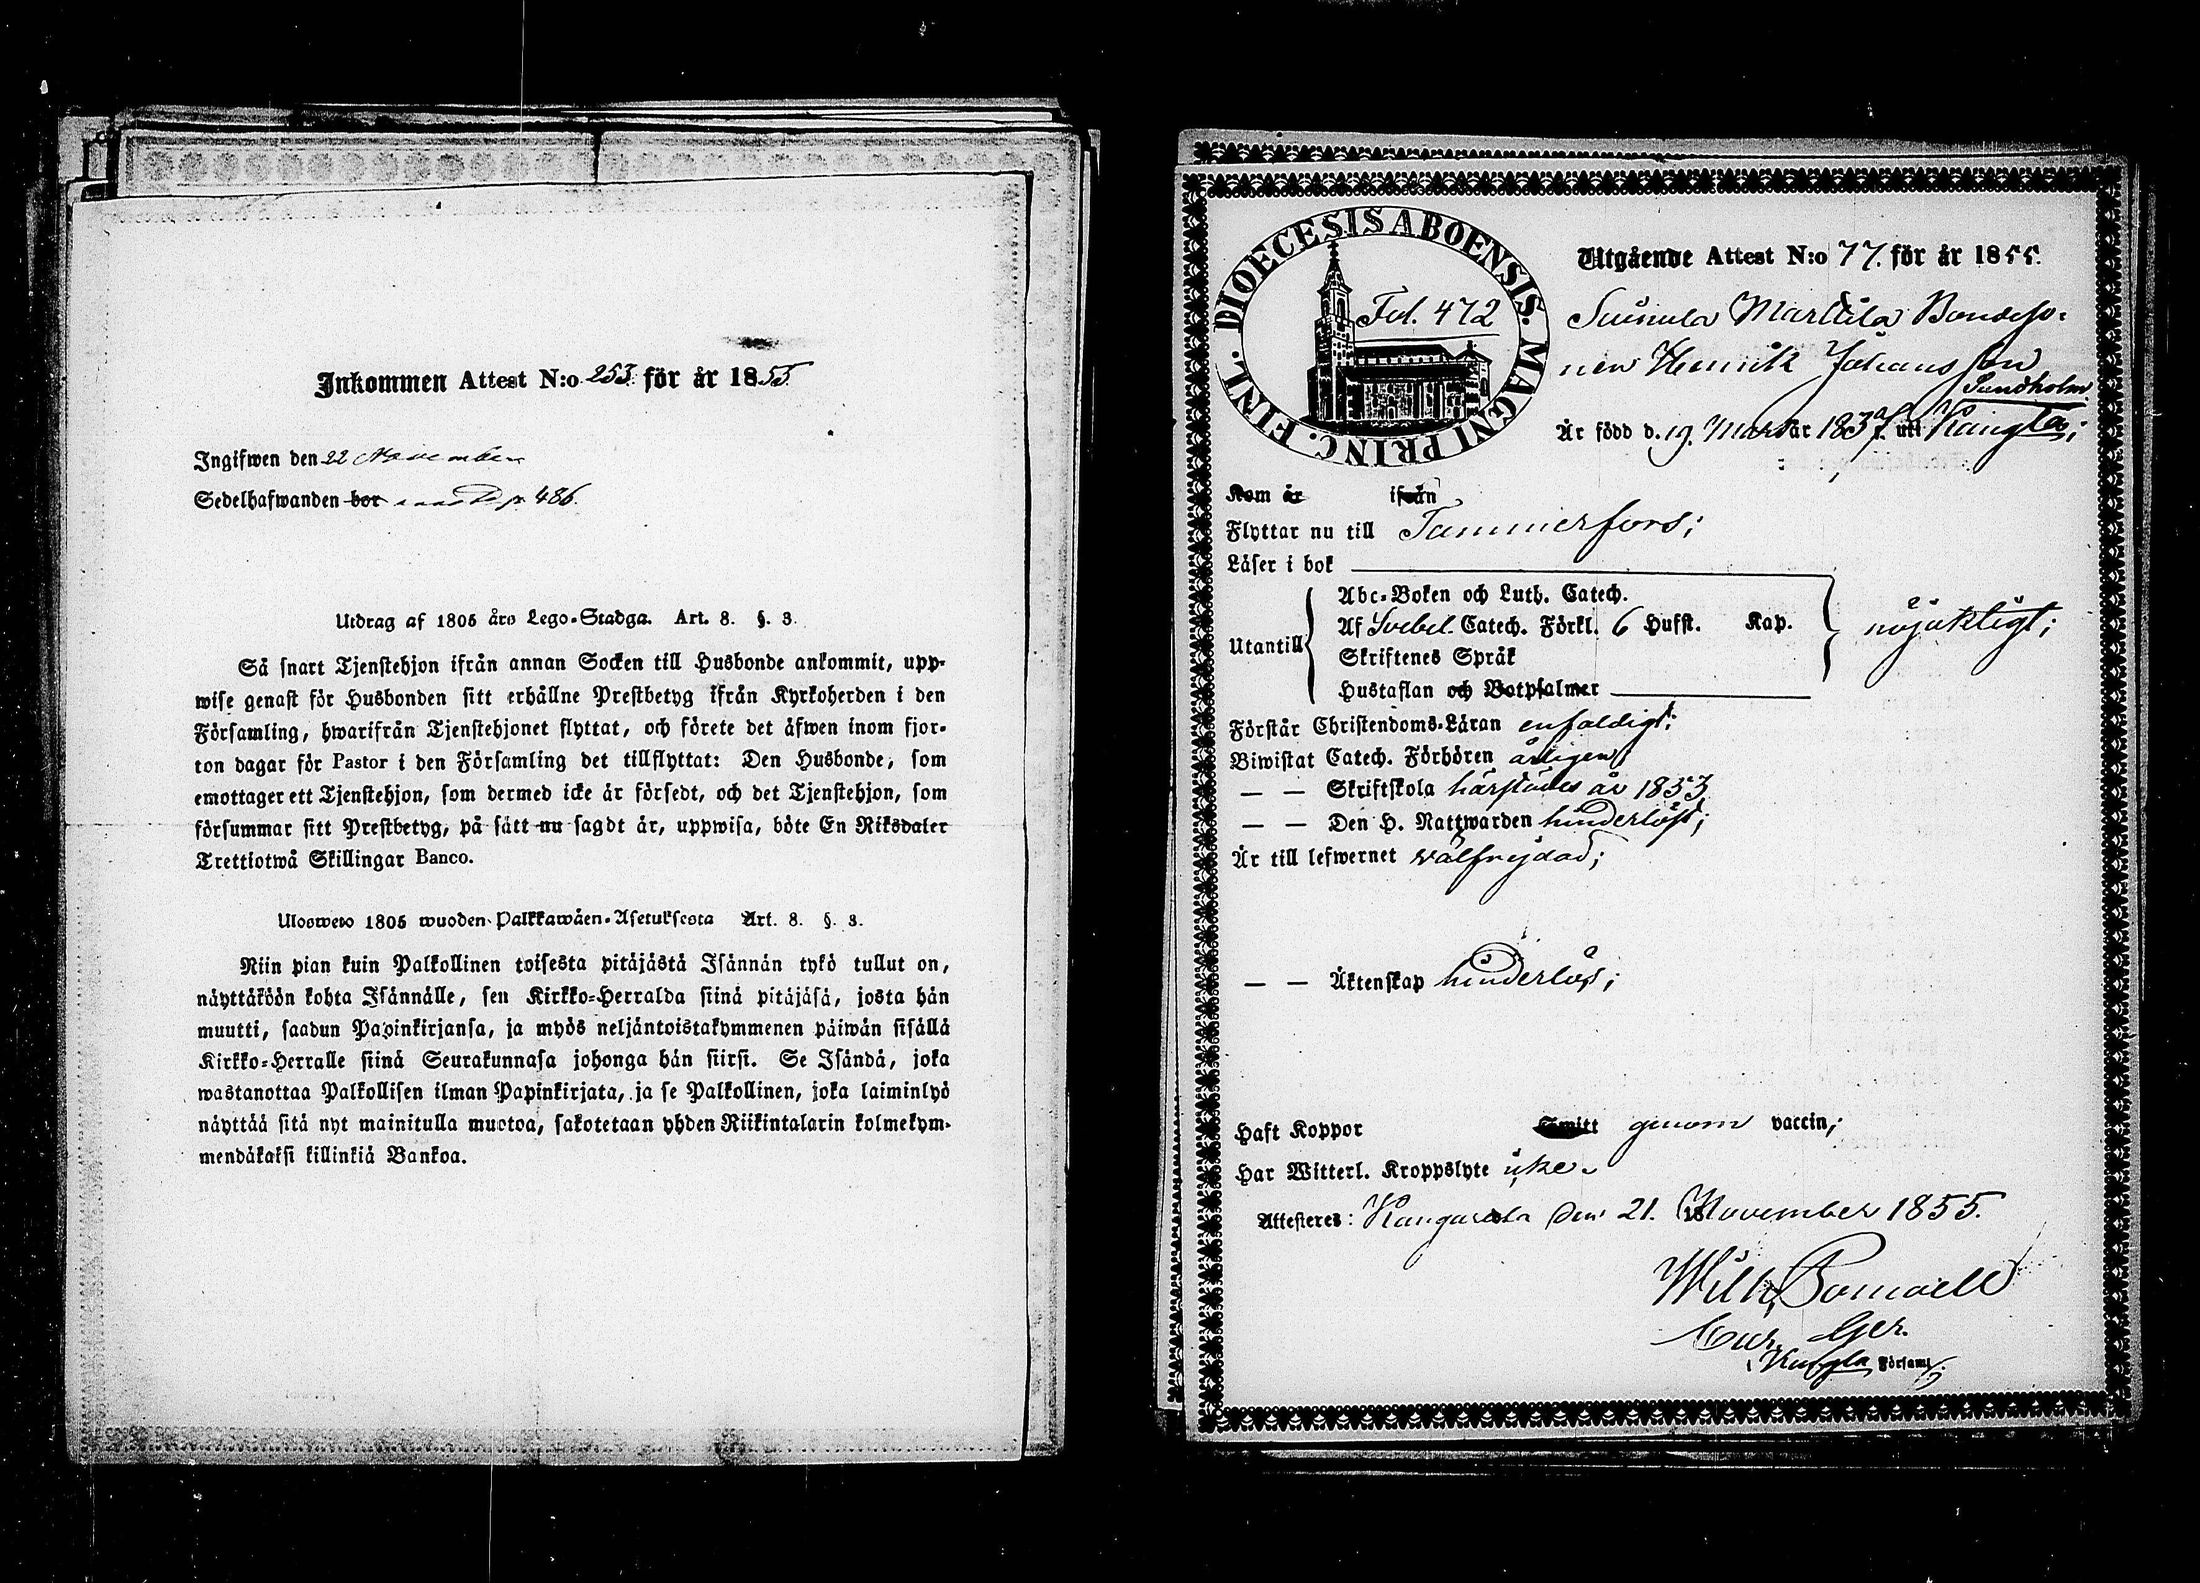 Inkommen Attest N:o 253. för år 1855
Ingifwen den 22 November
Sedelhafwanden bor 486.
Utdrag af 1805 års Lego-Stadga. Art. 8. §. 3.
Så snart Tjenstehjon ifrån annan Socken till Husbonde ankommit, upp-
wise genast för Husbonden sitt erhållne Prestbetyg ifrån Kyrkoherden i den
Församling, hwarifrån Tjenstehjonet flyttat, och förete det äfwen inom fjor-
ton dagar för Pastor i den Församling det tillflyttat: Den Husbonde, som
emottager ett Tjenstehjon, som dermed icke är försedt, och det Tjenstehjon, som
försummar sitt Prestbetyg, på sätt nu sagdt är, uppwisa, böte En Riksdaler
Trettiotwå Skillingar Banco.
Ulosweto 1805 wuoden Palkkawäen-Asetuksesta Art. 8. §. 3.
Niin pian kuin Palkollinen toisesta pitäjästä Isännän tykö tullut on,
näyttäköön kohta Isännälle, sen Kirkko-Herralda siinä pitäjäsä, josta hän
muutti, saadun Papinkirjansa, ja myös neljäntoistakymmenen päiwän sisällä
Kirkko-Herralle siinä Seurakunnasa johonga hän siirsi. Se Isändä, joka
wastanottaa Palkollisen ilman Papinkirjata, ja se Palkollinen, joka laiminlyö
näyttää sitä nyt mainitulla muotoa, sakotetaan yhden Riikintalarin kolmekym-
mendäkaksi killinkiä Bankoa.
DIOECESIS ABOENSIS. MAGNI PRINC. FINL.
Fol. 472
Utgående Attest N:o 77. för år 1855.
Suinula Marttila Bondeso-
nen Henrik Johansson
Sundholm
Är född d. 19. Mars år 1837. uti Kangla;
Kom år ifrån
Flyttar nu till Tammerfors;
Läser i bok
Abc-Boken och Luth. Catech.
Utantill Af Svebel. Catech. Förkl. 6 Hufst. Kap. nöjaktigt;
Skriftenes Språk
Hustaflan och Botpsalmer
Förstår Christendoms-Läran enfaldigt;
Biwistat Catech. Förhören årligen;
— — Skriftskola härstädes år 1853
— — Den H. Nattwarden hinderlöst;
Är till lefwernet välfrejdad;
— — Äktenskap hinderlös;
Haft Koppor genom vaccin;
Har Witterl. Kroppslyte icke.
Attesteres: Kangasala den 21. November 1855.
Wilh.
Ger.
i Kangla Församl.